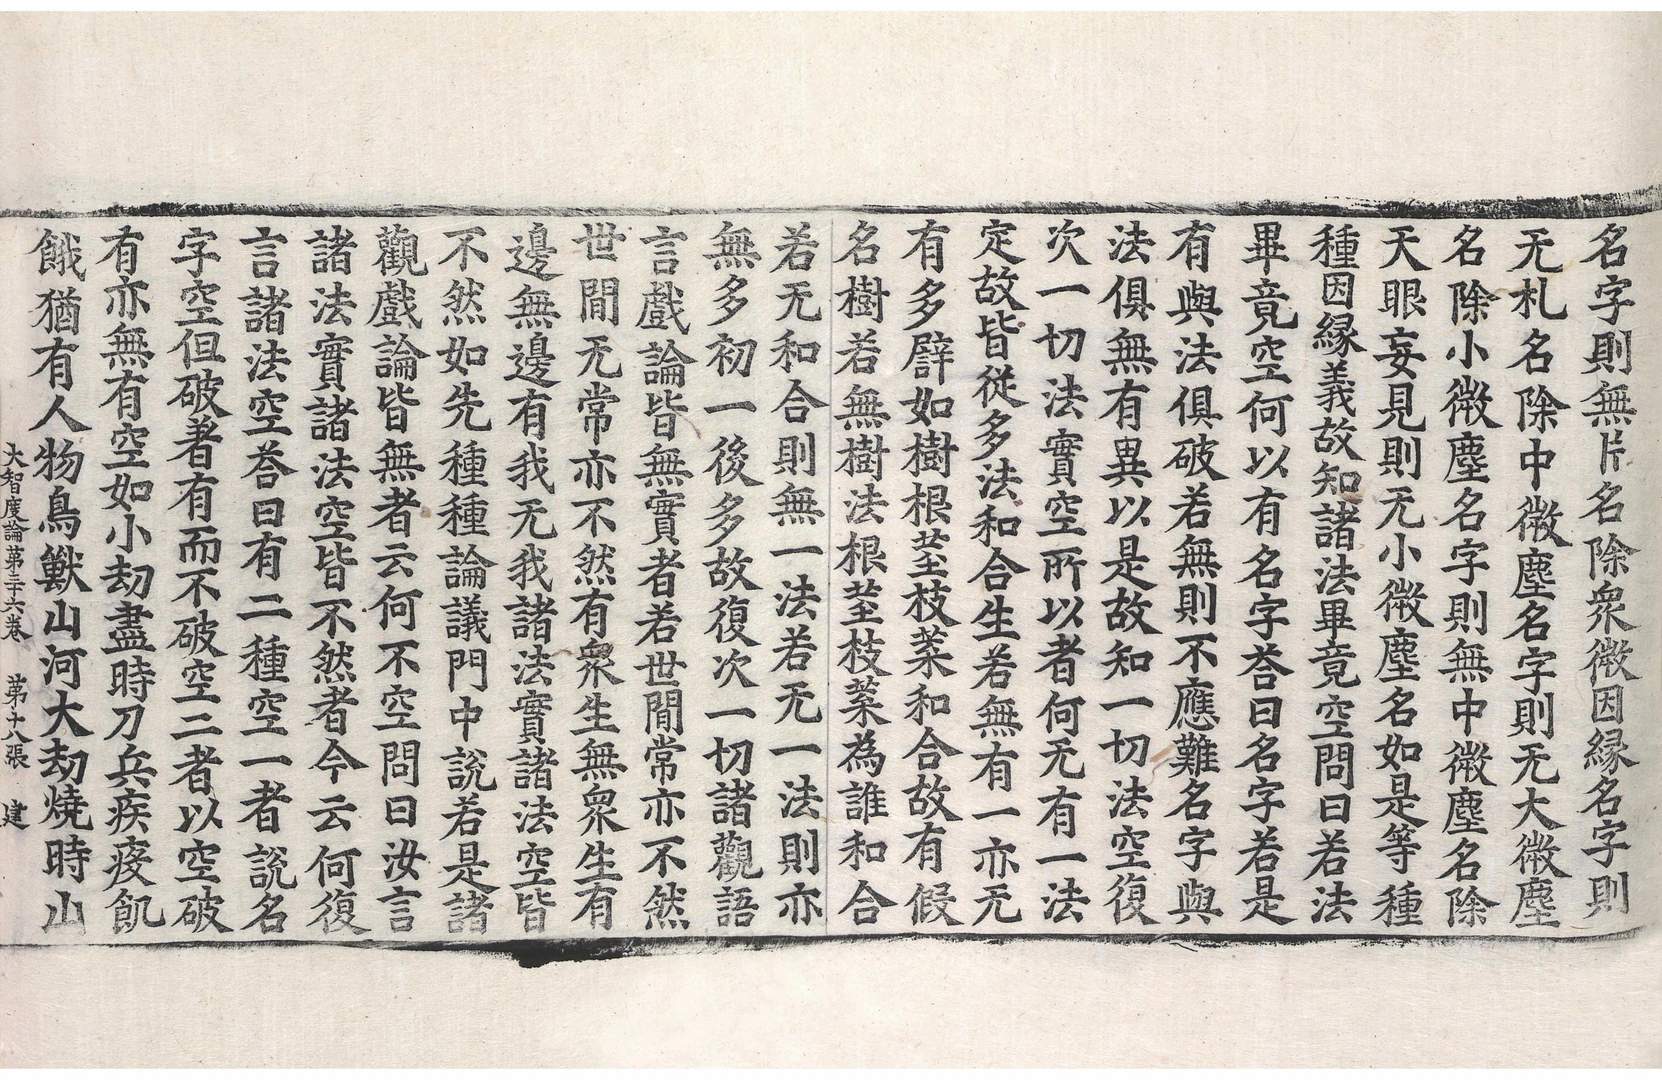 名字則無片名除衆微因縁名字則
无札名除中微塵名字則无大微塵
名除小微塵名字則無中微塵名除
天眼妄見則无小微塵名如是等種
種因縁義故知諸法畢竟空問曰若法
畢竟空何以有名字荅曰名字若是
有與法俱破若無則不應難名字與
法俱無有異以是故知一切法空復
次一切法實空所以者何无有一法
定故皆從多法和合生若無有一亦无
有多譬如樹根莖枝葉和合故有假
名樹若無樹法根莖枝葉為誰和合
若无和合則無一法若无一法則亦
無多初一後多故復次一切諸觀語
言戲論皆無實者若世間常亦不然
世間无常亦不然有衆生無衆生有
邊無邊有我无我諸法實諸法空皆
不然如先種種論議門中說若是諸
觀戲論皆無者云何不空問曰汝言
諸法實諸法空皆不然者今云何復
言諸法空荅曰有二種空一者說名
字空但破著有而不破空二者以空破
有亦無有空如小劫盡時刀兵疾疫飢
餓猶有人物鳥獸山河大劫燒時山
大智度論第三十六卷　第十八張　建